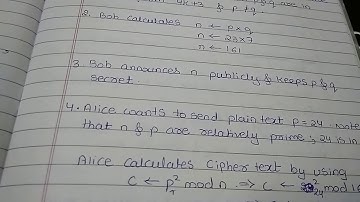 4k+3 & p ≠ q
2. Bob calculates n ← p×q
n ← 23×7
n ← 161
3. Bob announces n publicly & keeps p & q
secret
4. Alice wants to send plain text p = 24. Note
that n & p are relatively prime; 24 is in
Alice calculates Cipher text by using
C ← p² mod n ⇒ C ← 24² mod 16